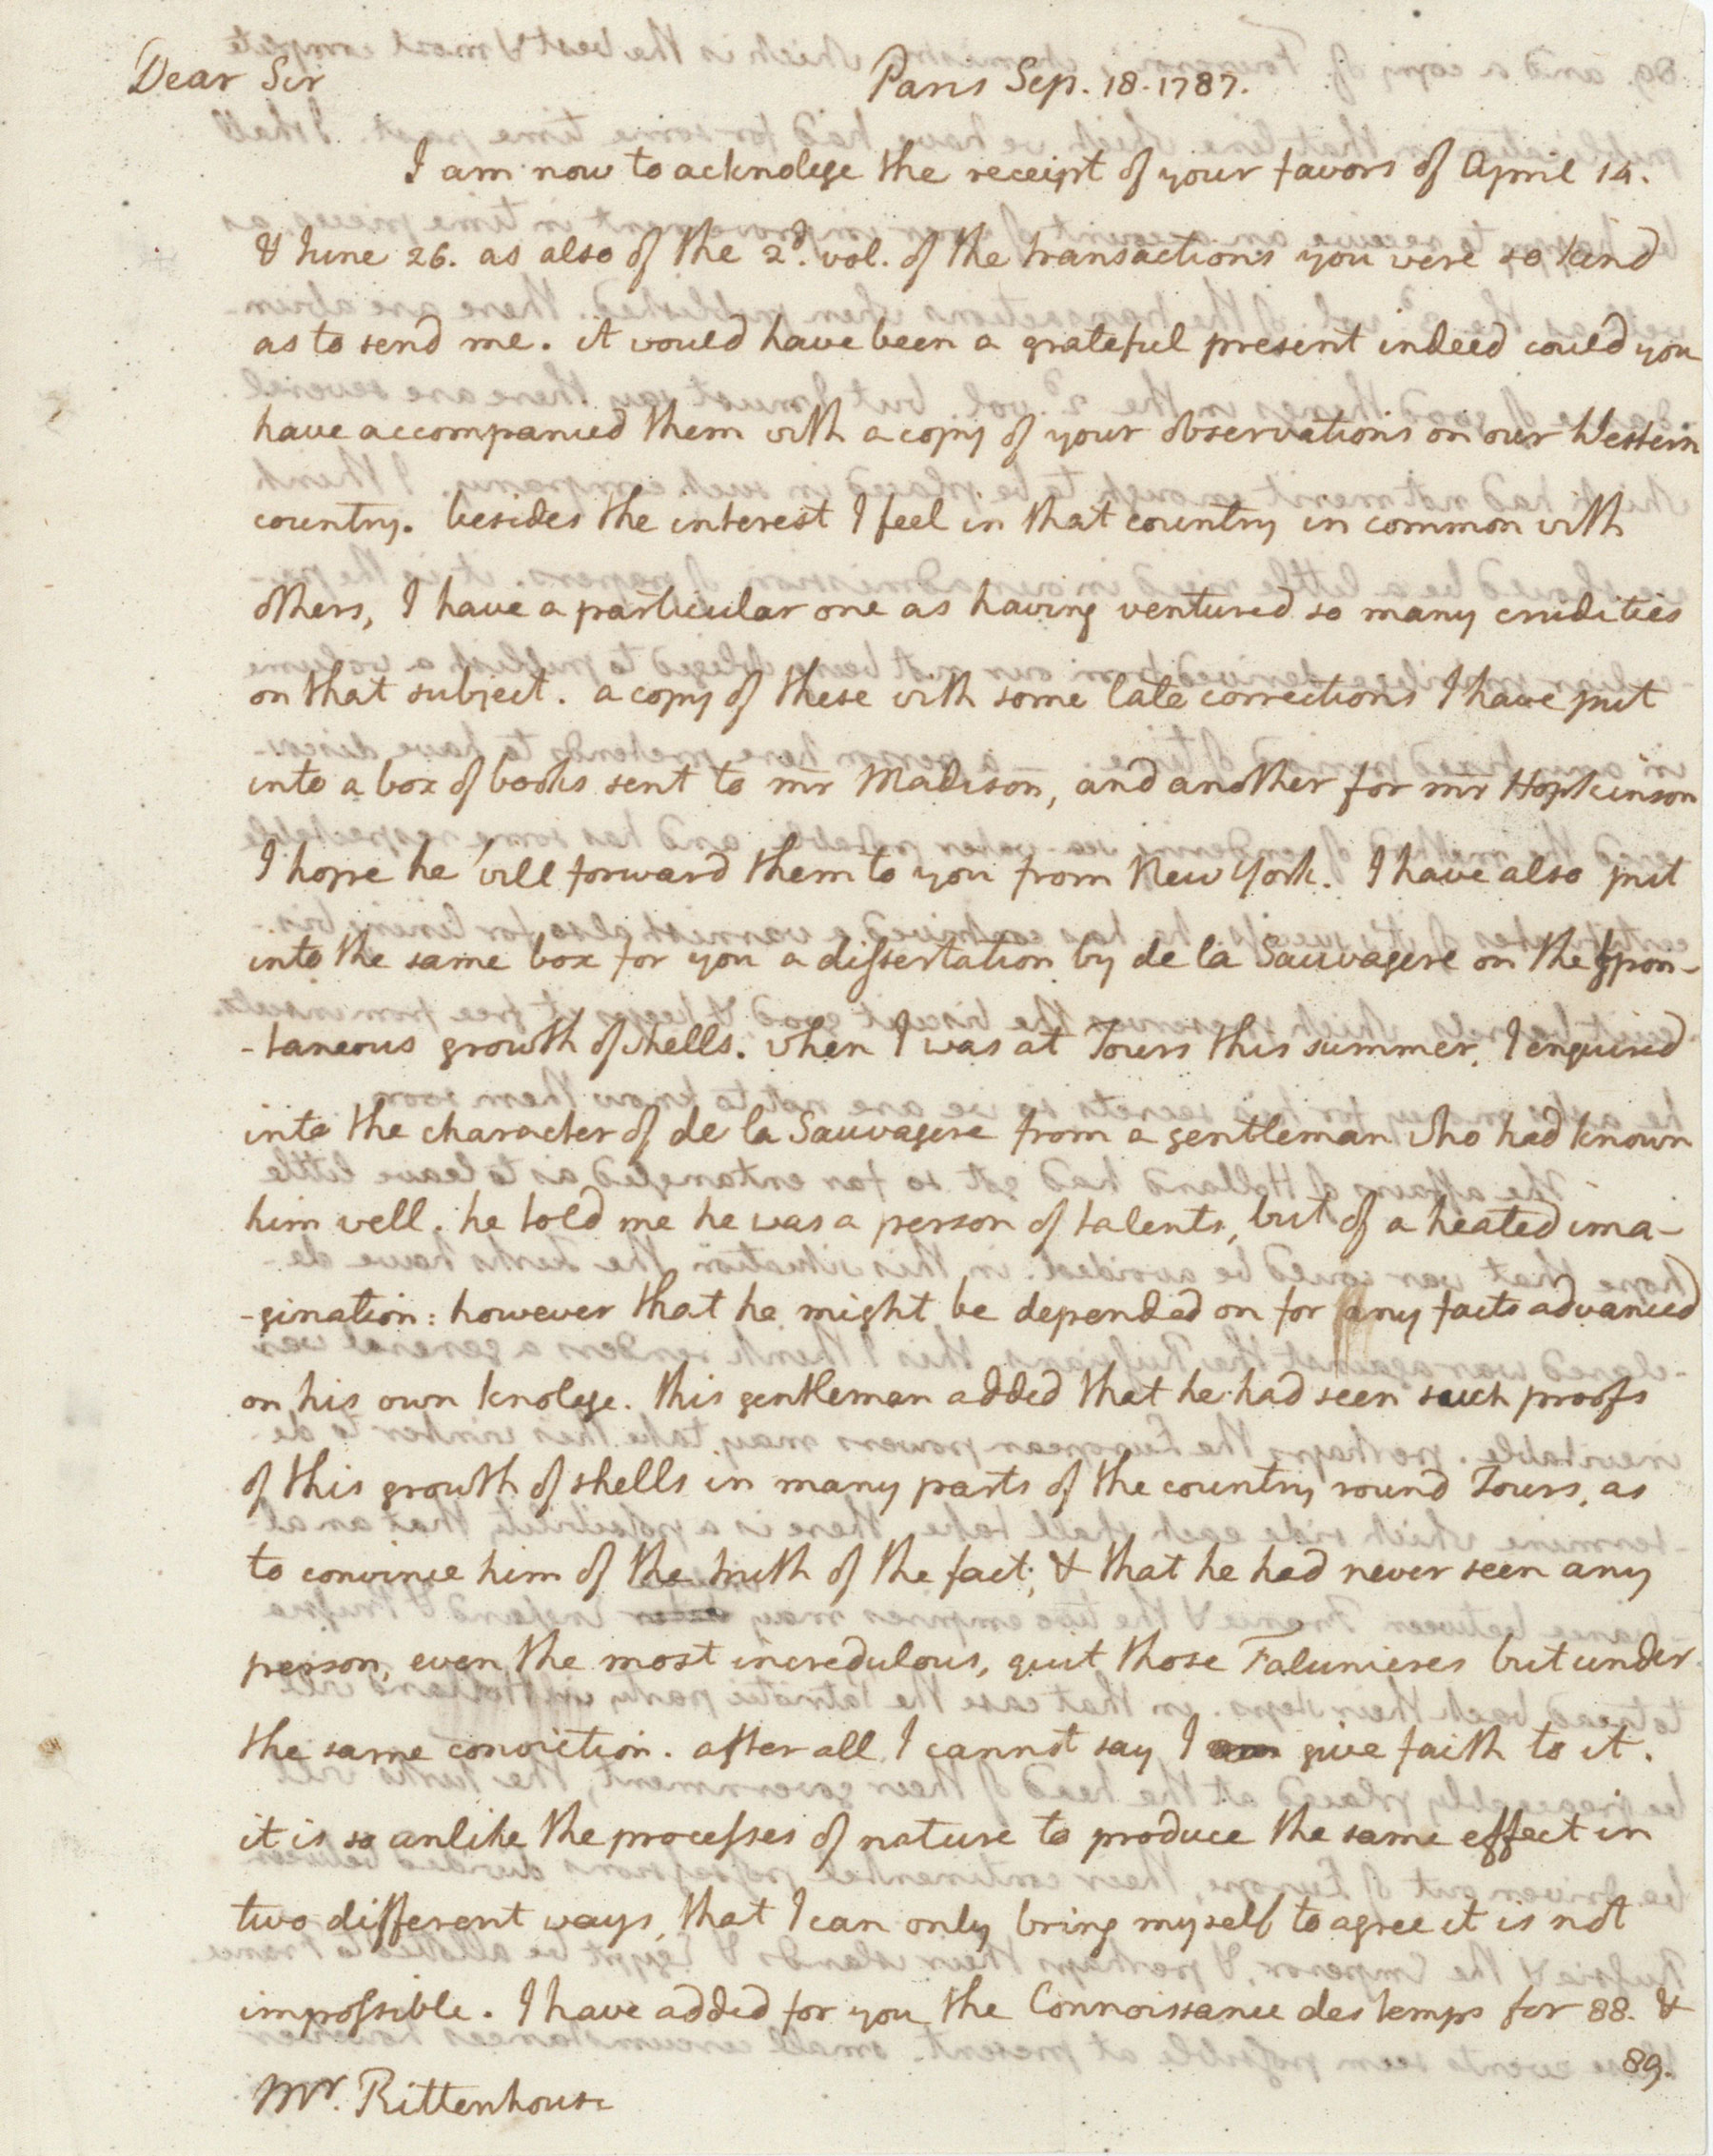 Dear Sir Paris Sep. 18. 1787.
I am now to acknolege the receipt of your favors of April 14.
& June 26. as also of the 2d. vol. of the transactions you were so kind
as to send me. it would have been a grateful present indeed could you
have accompanied them with a copy of your observations on our Western
country. besides the interest I feel in that country in common with
others, I have a particular one as having ventured so many crudities
on that subject. a copy of these with some late corrections I have put
into a box of books sent to mr Madison, and another for mr Hopkinson
I hope he will forward them to you from New York. I have also put
into the same box for you a dissertation by de la Sauvagere on the spon-
-taneous growth of shells. when I was at Tours this summer, I enquired
into the character of de la Sauvagere from a gentleman who had known
him well. he told me he was a person of talents, but of a heated ima-
-gination: however that he might be depended on for any facts advanced
on his own knolege. this gentleman added that he had seen such proofs
of this growth of shells in many parts of the country round Tours, as
to convince him of the truth of the fact; & that he had never seen any
person, even the most incredulous, quit those Falunieres but under
the same conviction. after all I cannot say I give faith to it.
it is so unlike the processes of nature to produce the same effect in
two different ways, that I can only bring myself to agree it is not
impossible. I have added for you the Connoissance des temps for 88. &
89.
Mr. Rittenhouse